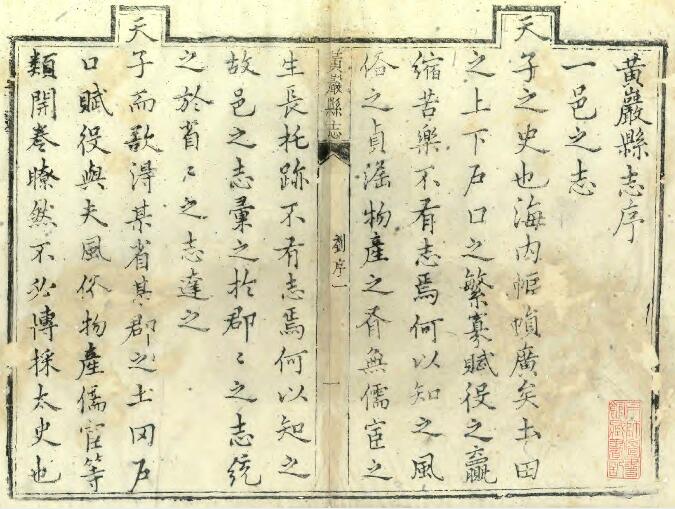 黄巖縣志序
一邑之志
天
子之史也海内幅幀廣矣土田
之上下戸口之繁寡賦役之贏
縮苦樂不有志焉何以知之風
俗之貞滛物產之有無儒宦之
黄巖縣志
劉序一
一
生長托跡不有志焉何以知之
故邑之志彙之扵郡〻之志統
之於省〻之志達之
天
子而欲淂某省某郡之土田戸
口賦役與夫風俗物產儒宦等
類開卷瞭然不必傳採太史也